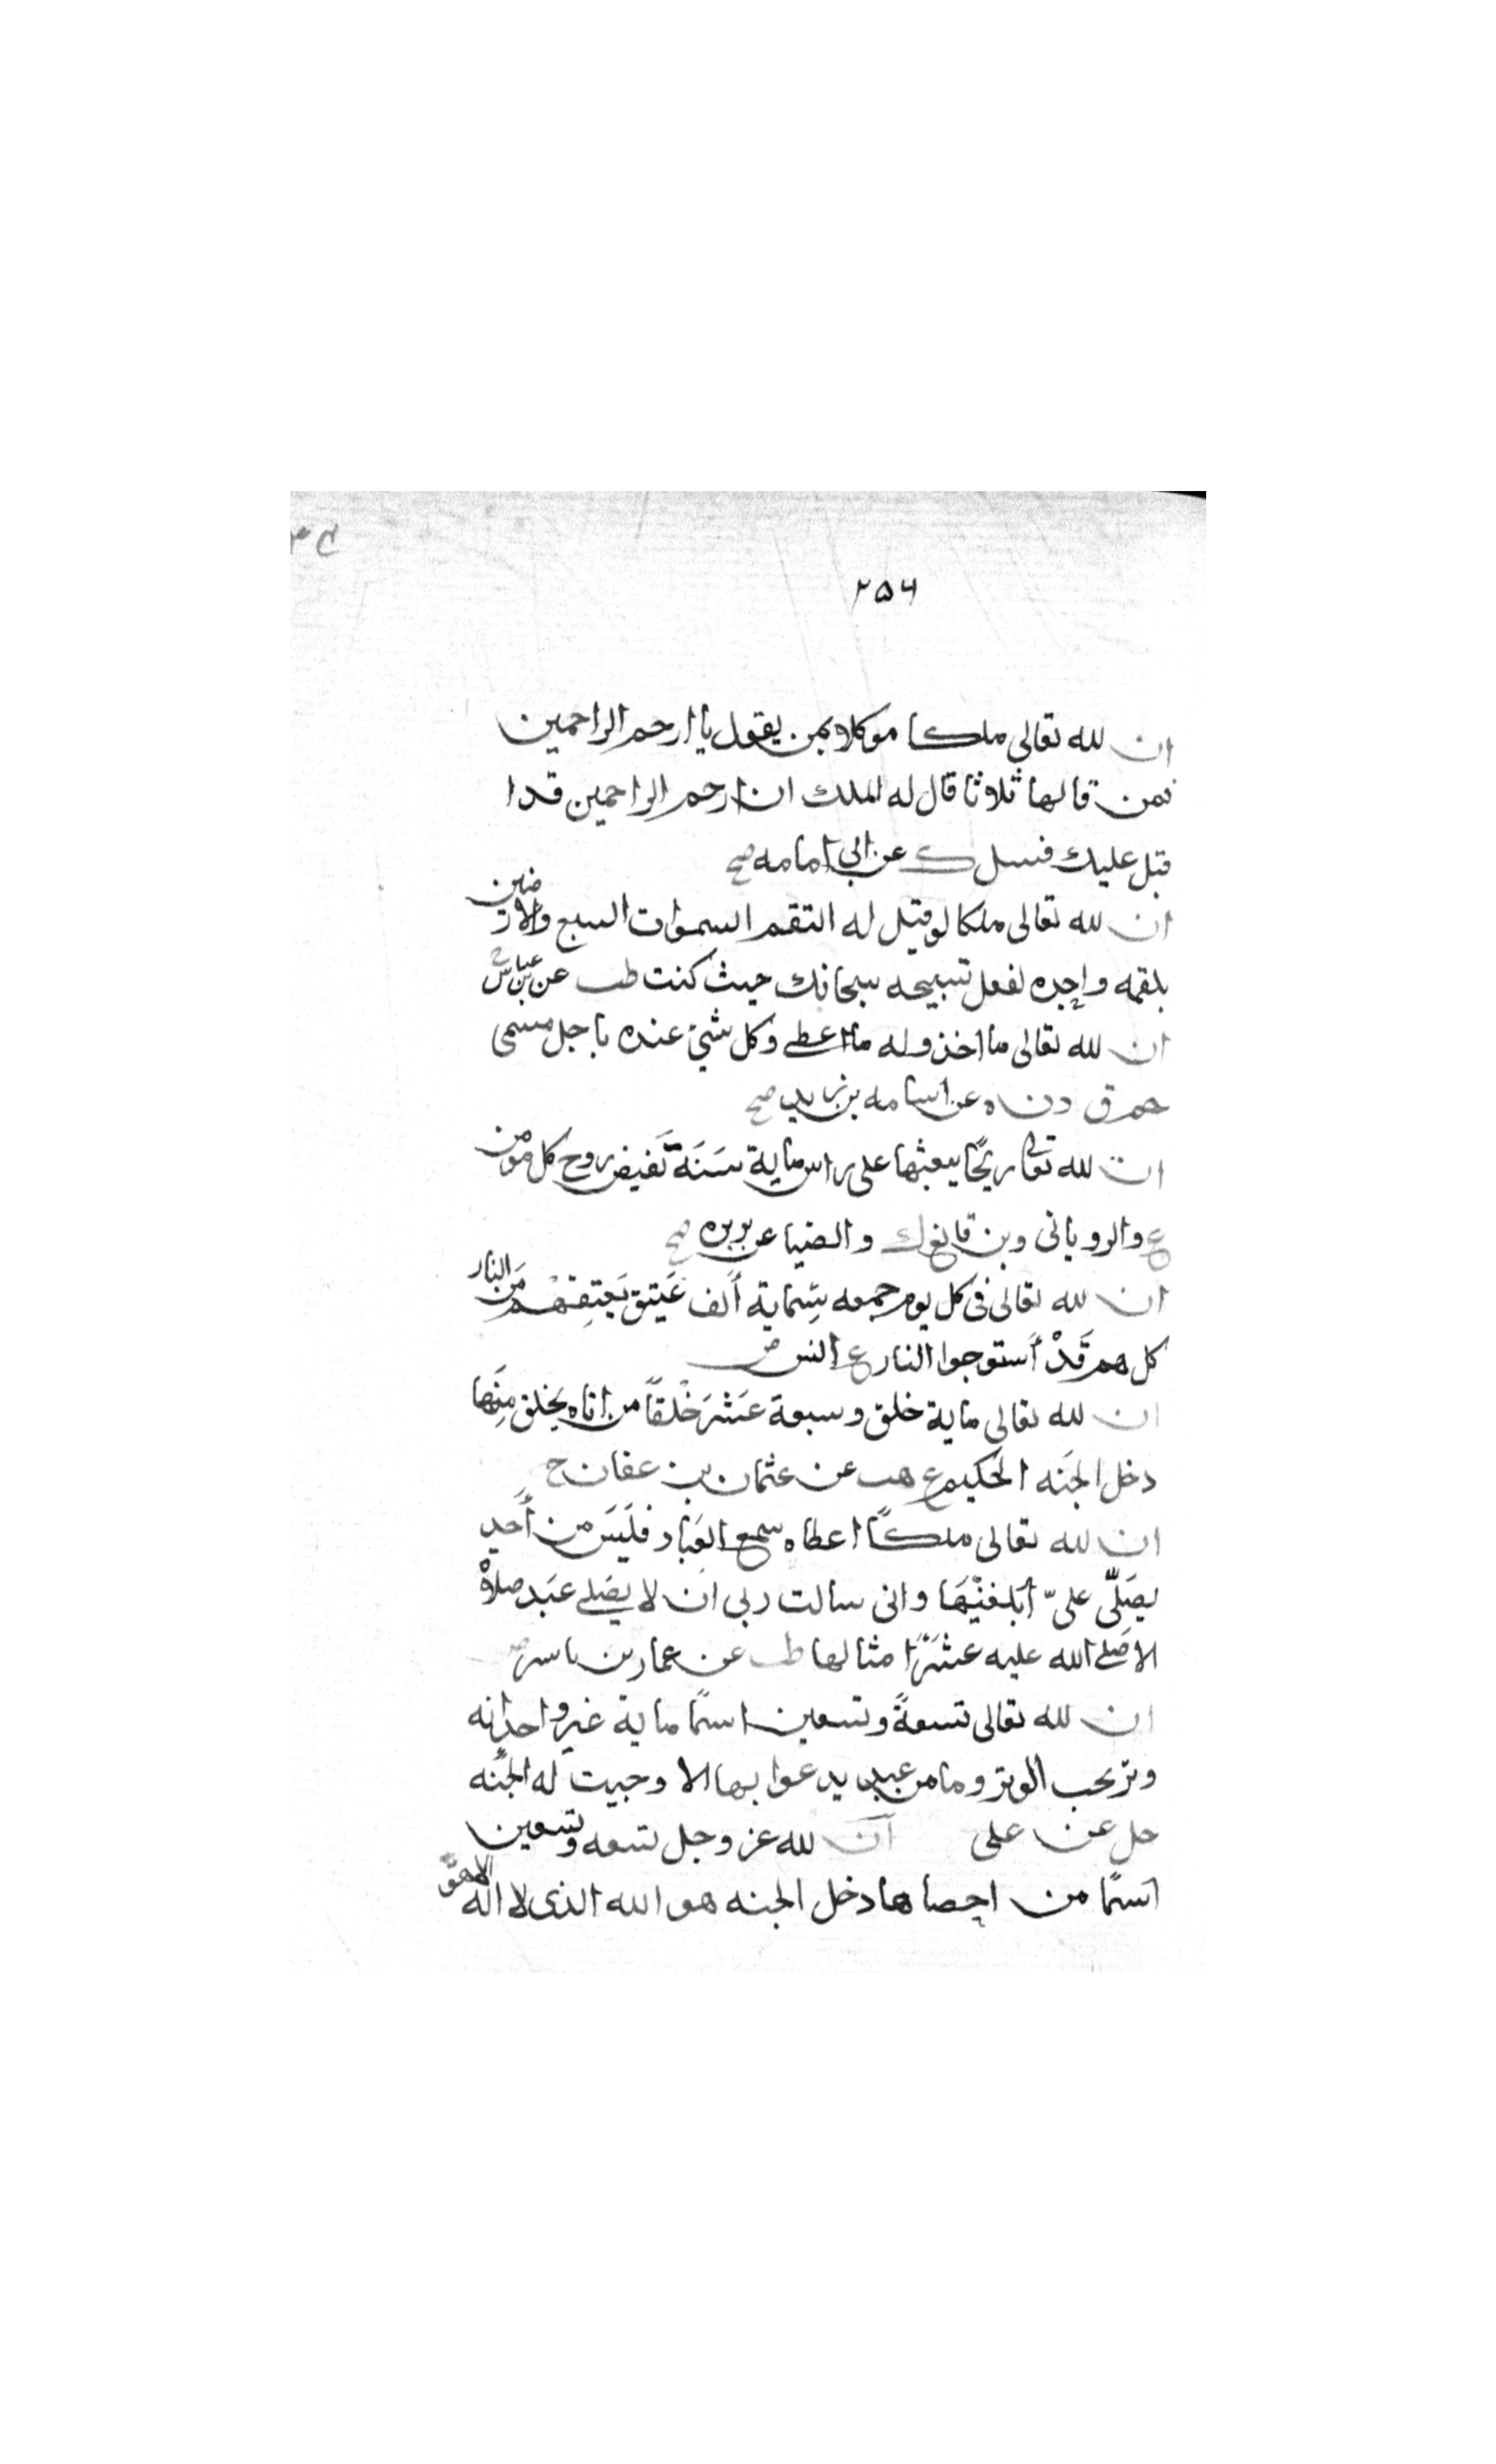 ٢٥٦
ان لله تعالى ملكا موكلا بمن يقول يا ارحم الراحمين
فمن قالها ثلاثا قال له الملك ان ارحم الراحمين قد ا
قبل عليك فسل ك عن ابي امامه صح
ان لله تعالى ملكا لو قيل له التقم السموات السبع والارضين
بلقمه واحده لفعل تسبيحه سبحانك حيث كنت طب عن بن عباس
ان لله تعالى ما اخذ وله ما اعطى وكل شيء عنده باجل مسمى
حم ق د ن ه عن اسامه بن زيد صح
ان لله تعالى ريحًا يبعثها على راس ماية سَنَة تَقبض روح كل مومن
ع والروياني وبن قانع ك والضيا عن بريده صح
ان لله تعالى فى كل يوم جمعه ستماية أَلف عَتيق يَعتِقهم مَن النار
كل هم قَدْ أستوجبوا النار ع انس ض
ان لله تعالى ماية خلق وسبعة عَشَرَ خُلقًا من اتاه بخلق مِنَها
دخل الجَنه الحَكيم ع هب عن عثمان بن عفان ح
ان لله تعالى ملكًا اعطاه سمع العَباد فلَيَس من أَحدٍ
يصَلّى علىّ أبلغنْيهَا وانى سالت ربى ان لا يصَلى عَبَد صلاةْ
الا صَلى الله عليه عشَرَ امثالها طب عن عمار بن ياسر
ان لله تعالى تسعةً وتسعين اسمًا ماية غير واحد انه
وتر يحب الوتر وما من عبد يدعوا بها الا وجبت له الجنَه
حل عن على ان لله عز وجل تسعه وتسعين
اسمًا من احصاها دخل الجنه هو الله الذى لا اله الا هو